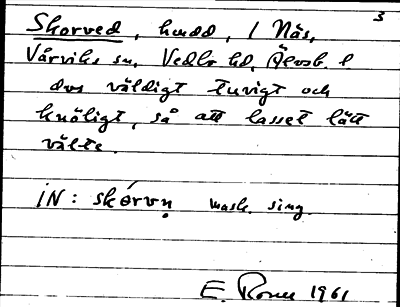 3
Skorved, hudd, / Näs,
Vårviks sn, Vedbo hd, Älvsb. l
dvs väldigt tuvigt och
knöligt, så att lasset lätt
välte.
IN: skórvn mask. sing.
E. 1961